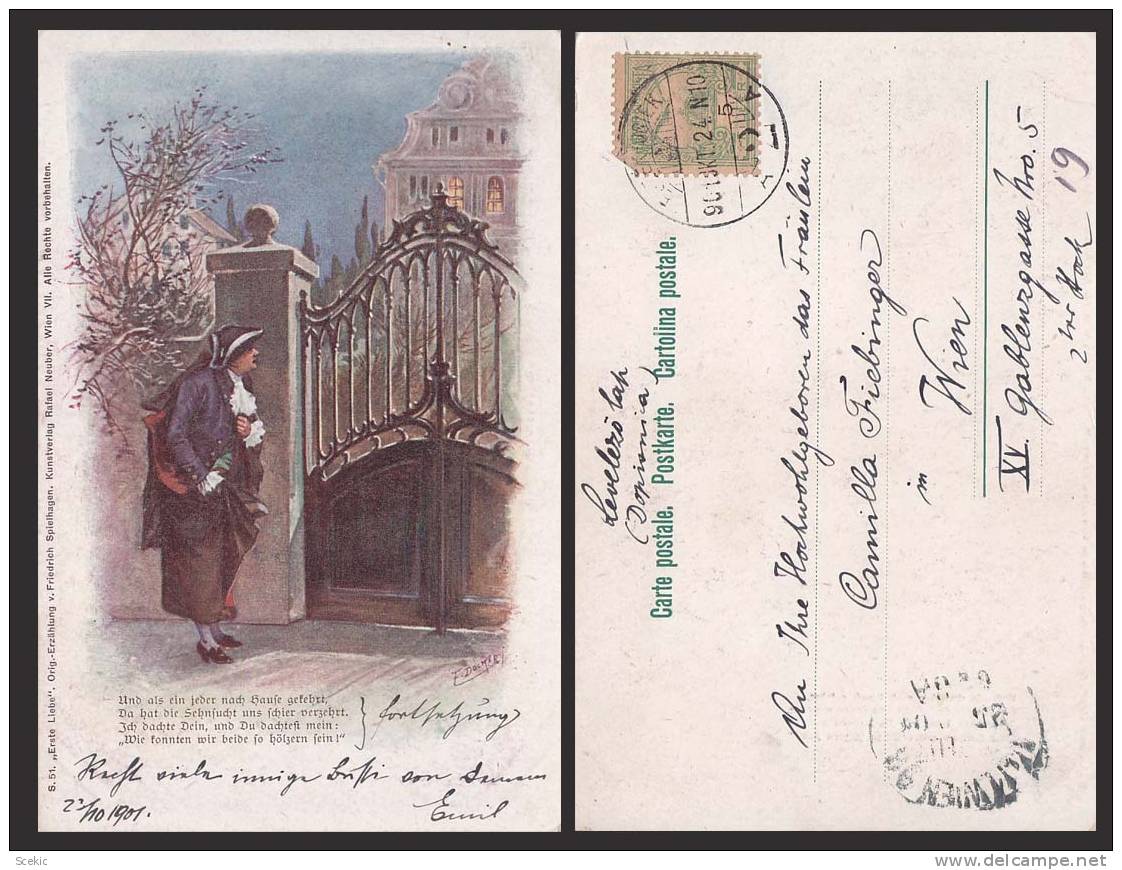 S. 51. „Erste Liebe“. Orig.-Erzählung v. Friedrich Spielhagen. Kunstverlag Rafael Neuber, Wien VII. Alle Rechte vorbehalten.
Und als ein jeder nach Hause gekehrt,
Da hat die Sehnsucht uns schier verzehrt.
Ich dachte Dein, und Du dachtest mein:
„Wie konnten wir beide so hölzern sein!“
Fortsetzung
Recht viele innige Bussi von Deinem
Emil
23/10 1901.
F. Docker
901 OKT. 24. N 10
Levelező lap
(Dopisnica)
Carte postale. Postkarte. Cartolina postale.
An Ihre Hochwohlgeboren das Fräulein
Camilla Friebinger
in
Wien
XV. Gablenzgasse Nro. 5
2ter Stock
19
WIEN
Scekic
delcampe.net